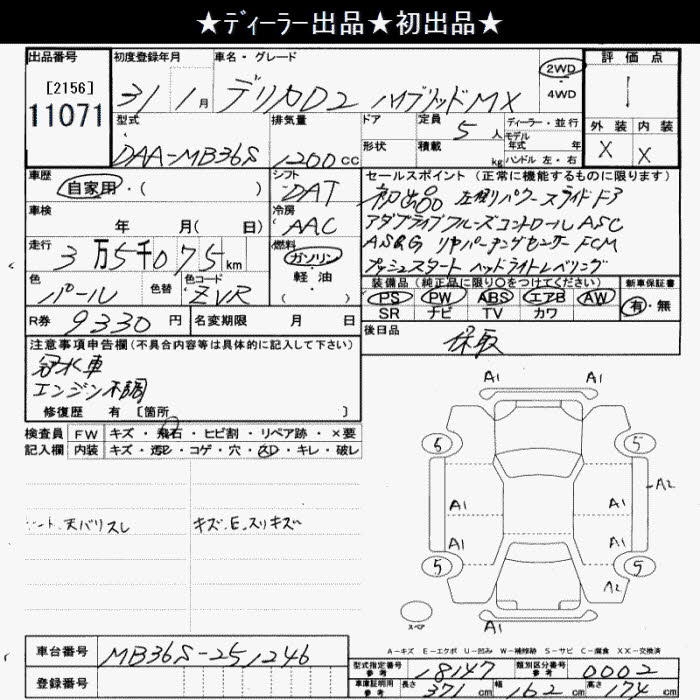 ★ディーラー出品★初出品★
出品番号
[2156]
11071
初度登録年月
31 1月
車名・グレード
デリカD2 ハイブリッドMX
2WD
・4WD
評価点
1
外装 内装
X X
型式
DAA-MB36S
排気量
1200cc
ドア
形状
定員 5人
積載 kg
ディーラー・並行
モデル
年式 年
ハンドル 左・右
車歴
自家用・( )
シフト
DAT
セールスポイント (正常に機能するものに限ります)
初出品 左側パワースライドドア
アダプティブクルーズコントロール ASC
AS&G リヤパーキングセンサー FCM
プッシュスタート ヘッドライトレベリング
車検
年 月( 日)
冷房
AAC
走行
3万5千075km
燃料
ガソリン
軽・油
色
パール
色替
色コード
ZVR
装備品 (純正品に限り○をつけてください)
PS PW ABS エアB AW
SR ナビ TV カワ
新車保証書
有・無
R券 9330円
名変期限 月 日
後日品
保取
注意事項申告欄(不具合内容等は具体的に記入して下さい)
冠水車
エンジン不調
修復歴 有 [箇所 ]
検査員
記入欄
FW キズ・飛石・ヒビ割・リペア跡・×要
内装 キズ・汚ﾚ・コゲ・穴・ｽﾚ・キレ・破レ
シート、天バリスレ
キズ、E、スリキズ
A1 A1
5 5
A2
A1 A1
A1 A1
5 5
A2
A1
スペア
A-キズ E-エクボ U-凹み W-補修跡 S-サビ C-腐食 XX-交換済
車台番号
MB36S-251246
登録番号
型式指定番号
参考
18147
類別区分番号
参考
0002
車庫証明用
参考
長さ 371cm 幅 162cm 高さ 174cm